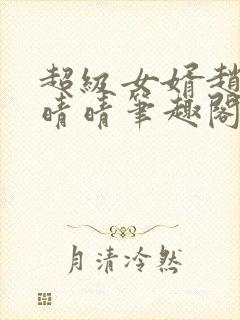 超级女婿趙
晴晴筆趣閣
月清冷然